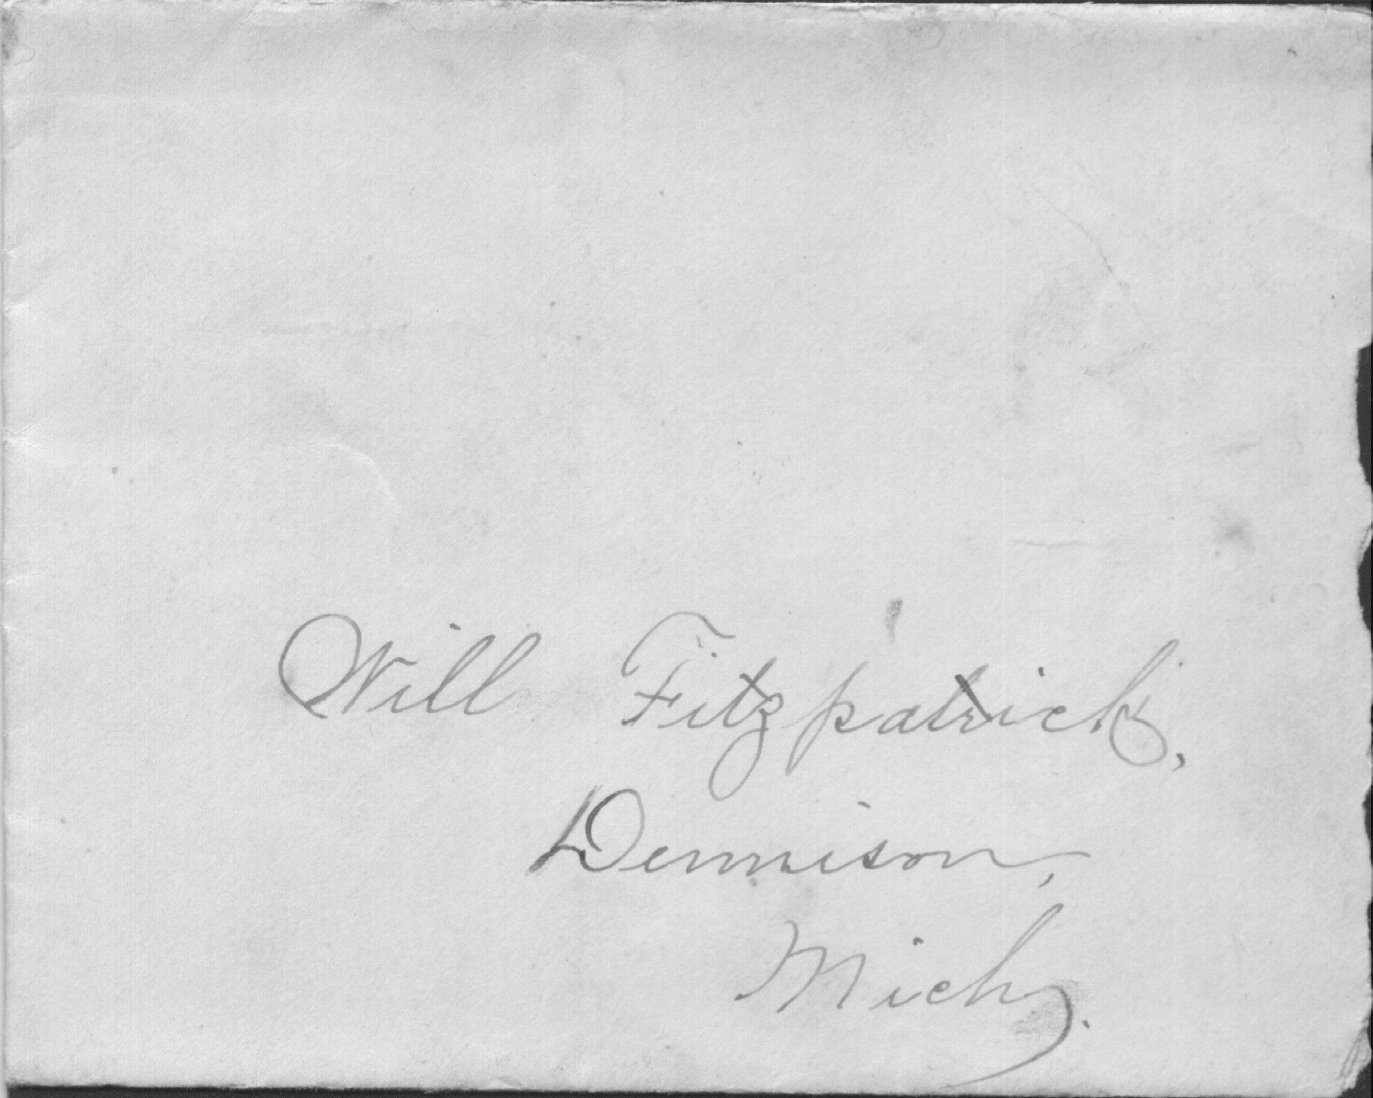 Will Fitzpatrick,
Dennison,
Mich.